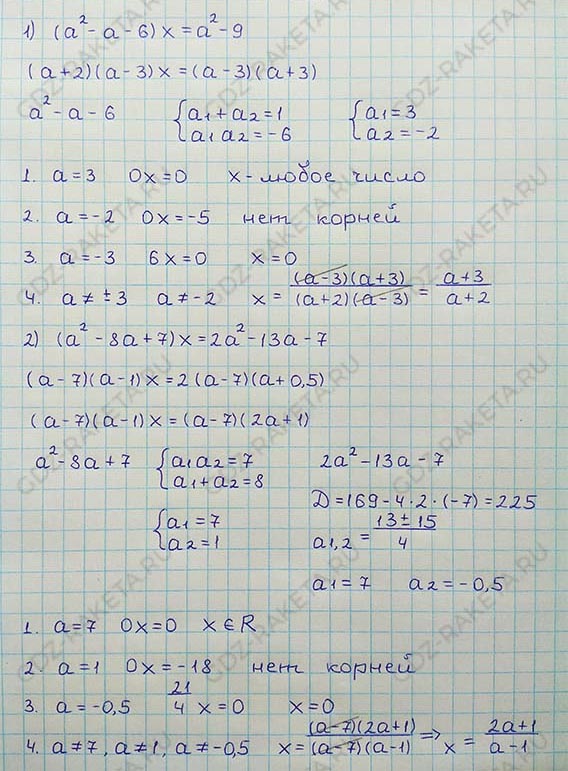 1) (a² - a - 6) x = a² - 9
(a+2)(a-3)x = (a-3)(a+3)
a² - a - 6 {a1 + a2 = 1 {a1 = 3
a1 a2 = -6 a2 = -2
1. a=3 0x=0 x - любое число
2. a=-2 0x=-5 нет корней
3. a=-3 6x=0 x=0
4. a≠±3 a≠-2 x = (a-3)(a+3)/(a+2)(a-3) = a+3/a+2
2) (a² - 8a + 7)x = 2a² - 13a - 7
(a-7)(a-1)x = 2(a-7)(a+0,5)
(a-7)(a-1)x = (a-7)(2a+1)
a² - 8a + 7 {a1 a2 = 7 2a² - 13a - 7
a1 + a2 = 8
D = 169 - 4·2·(-7) = 225
{a1 = 7 a1,2 = 13±15/4
a2 = 1
a1 = 7 a2 = -0,5
1. a=7 0x=0 x∈R
2. a=1 0x=-18 нет корней
3. a=-0,5 21/4 x=0 x=0
4. a≠7, a≠1, a≠-0,5 x = (a-7)(2a+1)/(a-7)(a-1) ⇒ x = 2a+1/a-1
GDZ-RAKETA.RU